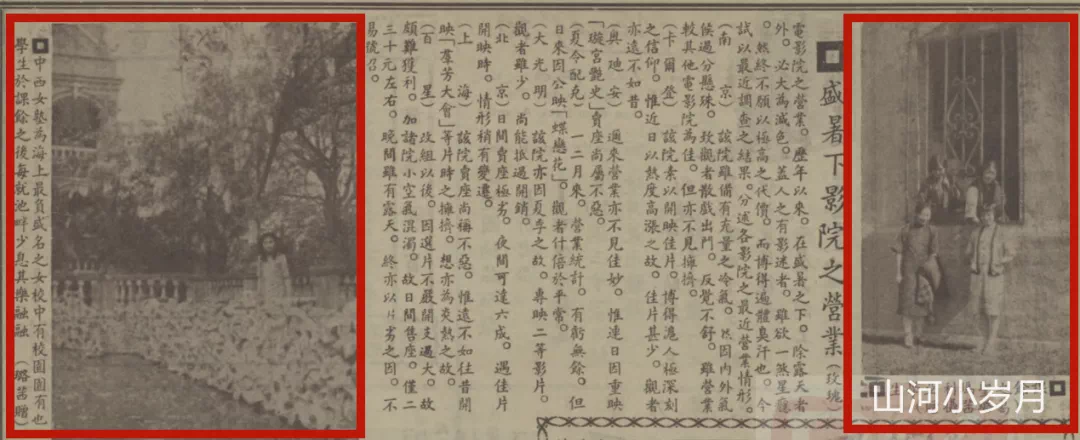 盛暑下影院之營業（玫瑰）
電影院之營業。歷年以來。在盛暑之下。除露天者
外。必大為減色。蓋人之有影迷者。雖欲一煞星癮
。然終不願以極高之代價。而博得遍體臭汗也。今
試以最近調查之結果。分述各影院之最近營業情形。
（南京）該院雖備有充量之冷氣。然因內外氣
候過分懸殊。致觀者散戲出門。反覺不舒。雖營業
較其他電影院為佳。但亦不見擁擠。
（卡爾登）該院素以開映佳片。博得滬人極深刻
之信仰。惟近日以熱度高漲之故。佳片甚少。觀者
亦遠不如昔。
（奧迪安）邇來營業亦不見佳妙。惟連日因重映
「璇宮艷史」賣座尚屬不惡。
（夏令配克）一二月來。營業統計。有虧無餘。但
日來因公映「蝶戀花」。觀者什倍於平常。
（大光明）該院亦因夏季之故。專映二等影片。
觀者雖少。尚能抵過開銷。
（北京）日間賣座極劣。夜間可達六成。遇佳片
開映時。情形稍有變遷。
（上海）該院賣座尚稱不惡。惟遠不如往昔開
映「羣芳大會」等片時之擁擠。想亦為炎熱之故。
（百星）改組以後。因選片不嚴開支過大。故
頗難獲利。加諸院小空氣混濁。故日間售座。僅二
三十元左右。晚間雖有露天。終亦以片劣之因。不
易號召。
中西女塾為海上最負盛名之女校中有校園園有池
學生於課餘之後每就池畔少息其樂融融（璐茜贈）
山河小岁月